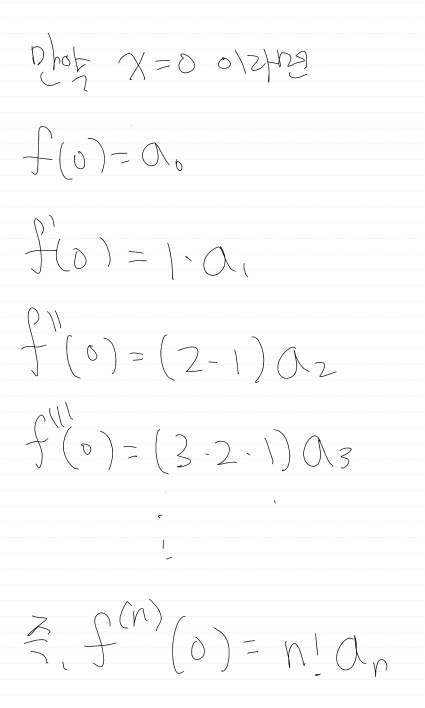 만약 x=0 이라면
f(0)=a₀
f'(0)=1·a₁
f''(0)=(2-1)a₂
f'''(0)=(3·2·1)a₃
⋮
즉, f⁽ⁿ⁾(0)=n!aₙ